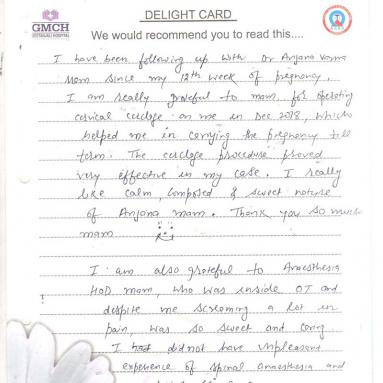 GMCH
DELIGHT CARD
We would recommend you to read this....
I have been following up with Dr Anjana Verma
Mam since my 12th week of pregnancy.
I am really grateful to mam, for operating
cervical cerclage on me in Dec 2018, which
helped me in carrying the pregnancy till
term. The cerclage procedure proved
very effective in my case. I really
like calm, composed & sweet nature
of Anjana mam. Thank you so much
mam
I am also grateful to Anaesthesia
HOD mam, who was inside OT and
despite me screaming a lot in
pain, was so sweet and caring
I did not have unpleasant
experience of spinal anaesthesia and